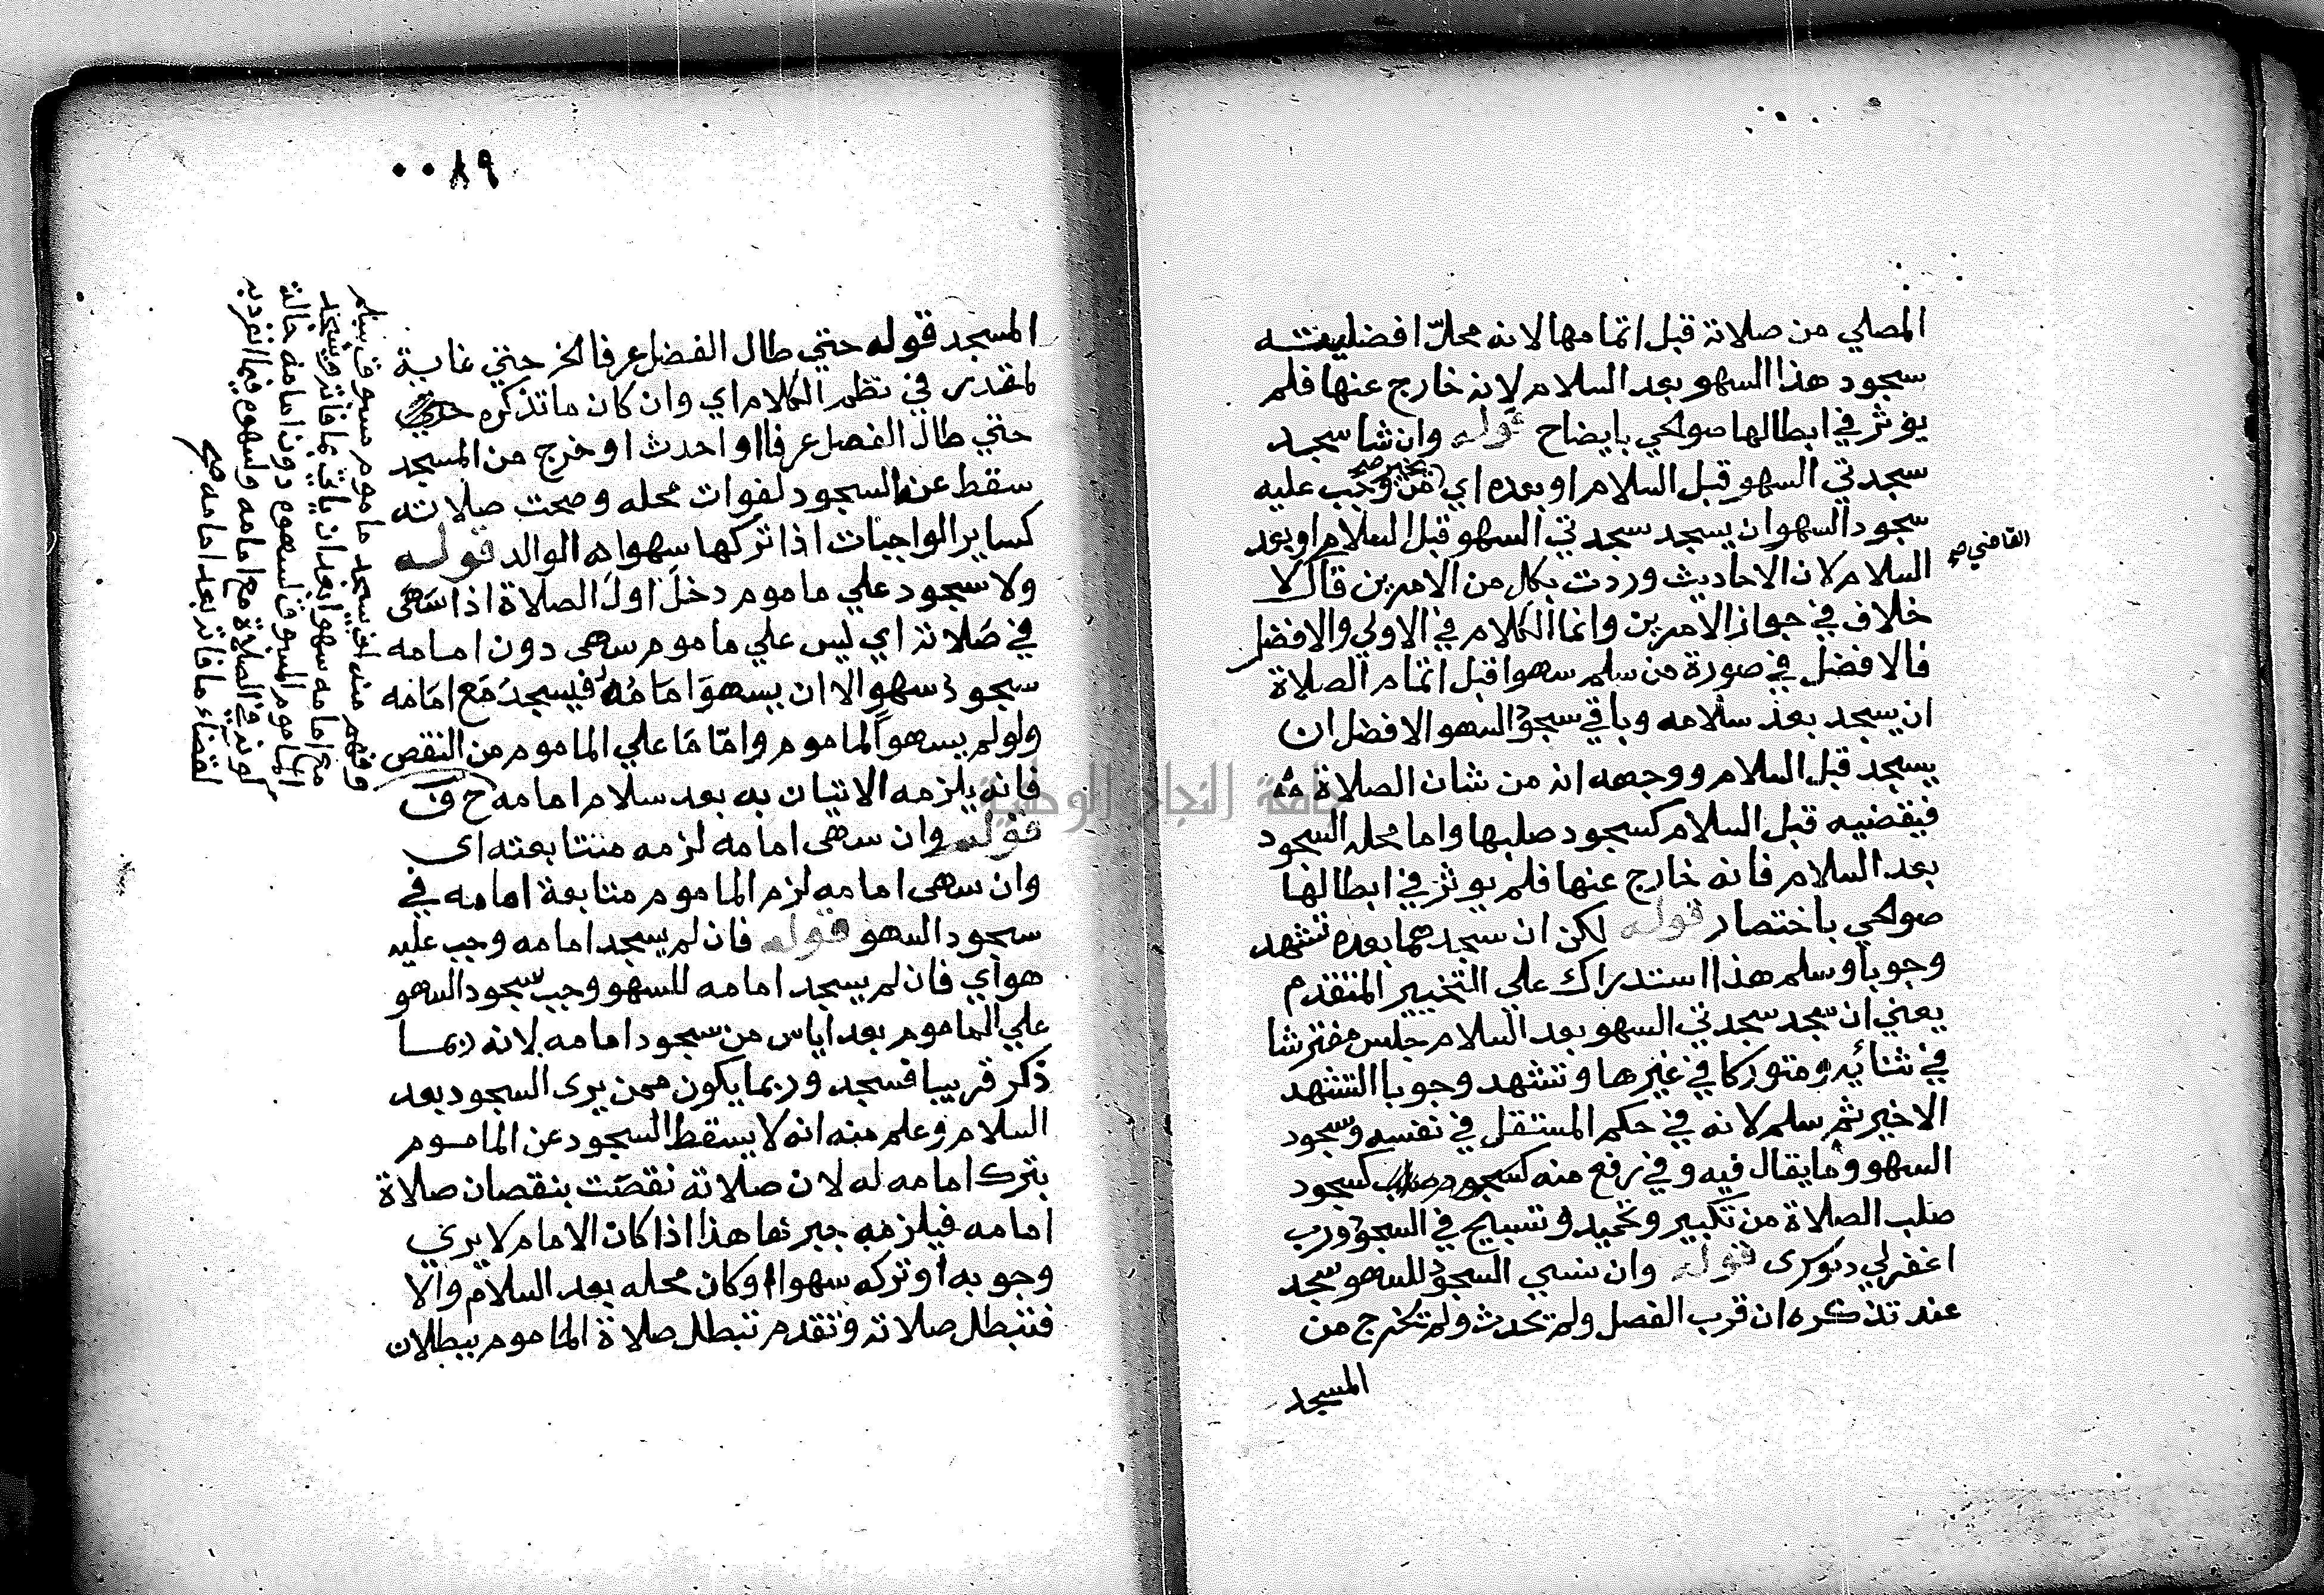 المصلي من صلاته قبل اتمامها لانه محل افضليته
سجود هذا السهو بعد السلام لانه خارج عنها فلم
يوثر في ابطالها صوالحي بايضاح قوله وان شا سجد
سجدتي السهو قبل السلام او بعده اي يخير صح من وجب عليه
سجود السهو ان يسجد سجدتي السهو قبل السلام او بعد
القاضي صح
السلام لان الاحاديث وردت بكل من الامرين قال لا
خلاف في جواز الامرين وانما الكلام في الاولي والافضل
فالافضل في صورة من سلم سهوا قبل اتمام الصلاة
ان يسجد بعد سلامه وباقي سجود السهو الافضل ان
يسجد قبل السلام ووجهه انه من شان الصلاة
فيقضيه قبل السلام كسجود صلبها واما محله السجود
بعد السلام فانه خارج عنها فلم يوثر في ابطالها
صوالحي باختصار قوله لكن ان سجدهما بعده تشهد
وجوبا وسلم هذا استدراك علي التخيير المتقدم
يعني ان سجد سجدتي السهو بعد السلام جلس مفترشا
في ثنائيه ومتوركا في غيرها وتشهد وجوبا التشهد
الاخير ثم سلم لانه في حكم المستقل في نفسه وسجود
السهو وما يقال فيه وفي رفع منه كسجود
صلب الصلاة من تكبير وتحميد وتسبيح في السجود ورب
اغفرلي دنوكرى قوله وان نسي السجود للسهو سجد
عند تذكره ان قرب الفصل ولم تحدث ولم تخرج من
المسجد
٠٠٨٩
المسجد قوله حتي طال الفصل عرفا الخ حتي غاية
لمقدر في نظم الكلام اي وان كان ما تذكره
حتي طال الفصل عرفا او احدث او خرج من المسجد
سقط عنه السجود لفوات محله وصحت صلاته
كساير الواجبات اذا تركها سهوا اه الوالد قوله
ولا سجود علي ماموم دخل اول الصلاة اذا سهى
في صلاته اي ليس علي ماموم سهى دون امامه
سجود سهو الا ان يسهو امامه فيسجد مع امامه
ولو لم يسهو الماموم واما ما علي الماموم من النقص
فانه يلزمه الاتيان به بعد سلام امامه ح ف
قوله وان سهى امامه لزمه متابعته اي
وان سهى امامه لزم الماموم متابعة امامه في
سجود السهو قوله فان لم يسجد امامه وجب عليه
هو اي فان لم يسجد امامه للسهو وجب سجود السهو
علي الماموم بعد اياس من سجود امامه لانه ربما
ذكر قريبا فسجد وربما يكون ممن يرى السجود بعد
السلام وعلم منه انه لا يسقط السجود عن الماموم
بترك امامه له لان صلاته نقصت بنقصان صلاة
امامه فيلزمه جبرتها هذا اذا كان الامام لا يري
وجوبه او تركه سهوا او كان محله بعد السلام والا
فتبطل صلاته وتقدم تبطل صلاة الماموم ببطلان
وفهم منه انه يسجد ماموم مسبوق بسلم
مع امامه سهوا بعد ان ياتي بما فاته ويسجد
الماموم المسبوق لسهوه دون امامه حالة
كونه في الصلاة مع امامه ولسهوه فيما انفرد به
لقضاء ما فاته بعد امامه صح